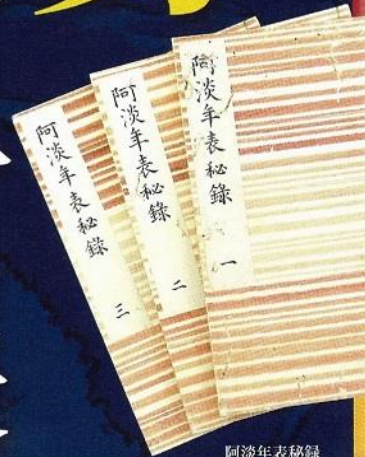 阿淡年表秘錄 一
阿淡年表秘錄 二
阿淡年表秘錄 三
阿淡年表秘録